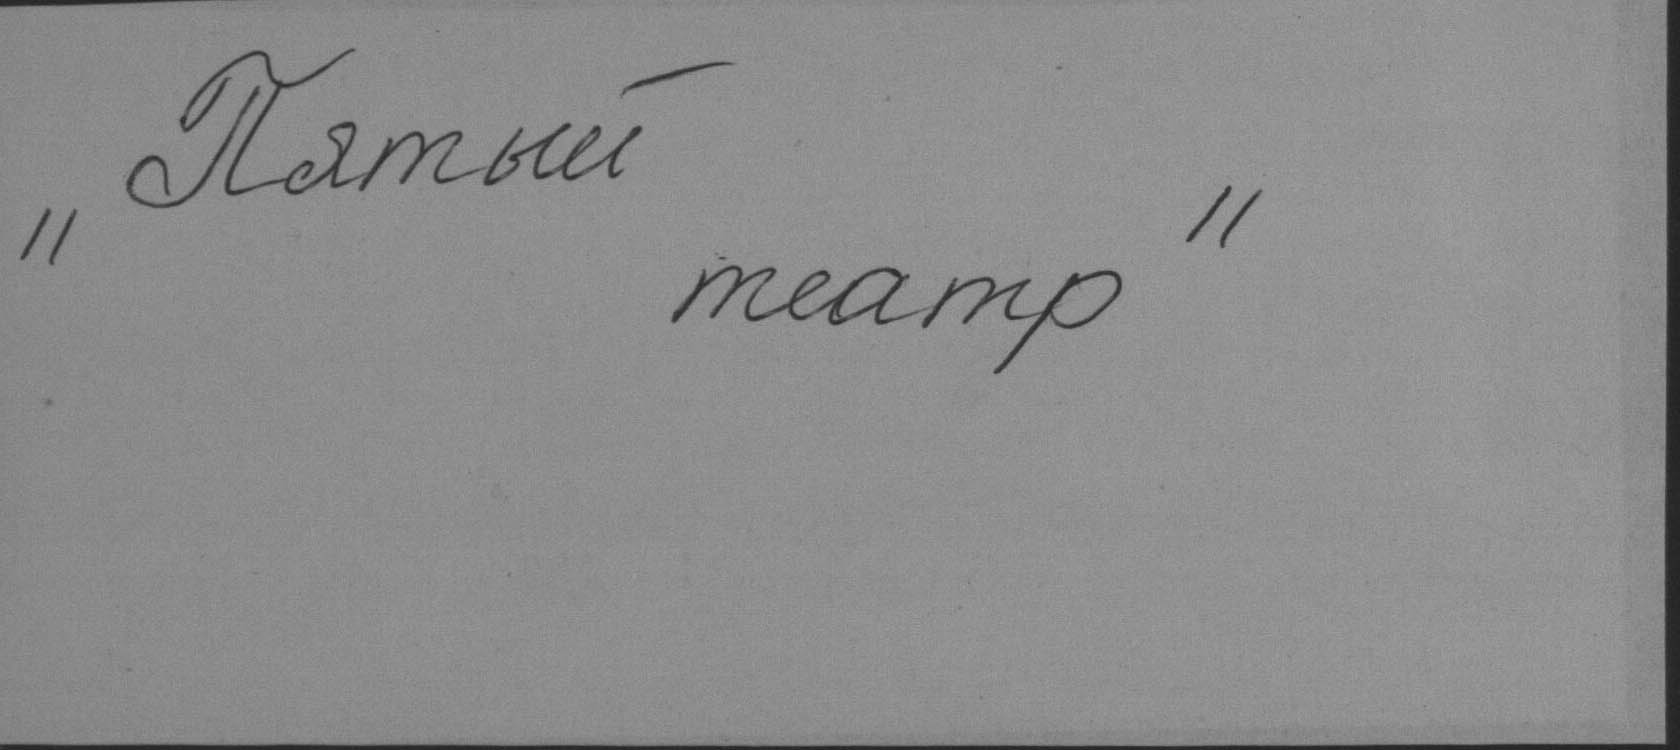 „Пятый
театр"